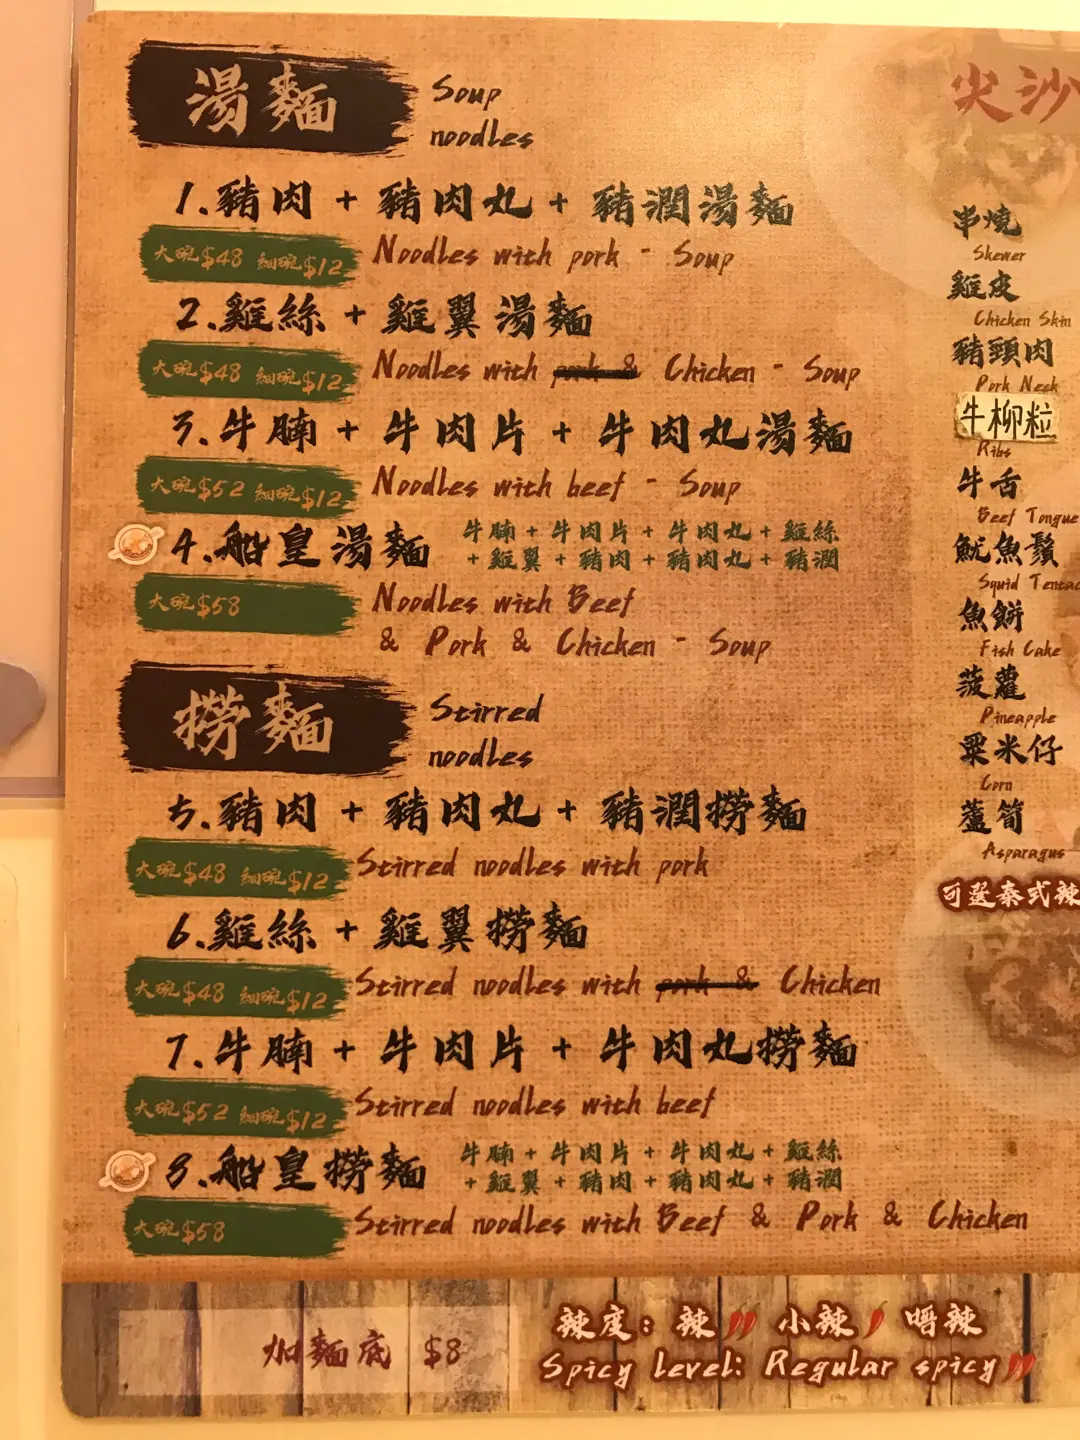 湯麵
Soup
noodles
1.豬肉 + 豬肉丸 + 豬潤湯麵
大碗$48 細碗$12
Noodles with pork - Soup
2.雞絲 + 雞翼湯麵
大碗$48 細碗$12
Noodles with pork & Chicken - Soup
3.牛腩 + 牛肉片 + 牛肉丸湯麵
大碗$52 細碗$12
Noodles with beef - Soup
4.船皇湯麵
牛腩 + 牛肉片 + 牛肉丸 + 雞絲
+ 雞翼 + 豬肉 + 豬肉丸 + 豬潤
大碗$58
Noodles with Beef
& Pork & Chicken - Soup
撈麵
Stirred
noodles
5.豬肉 + 豬肉丸 + 豬潤撈麵
大碗$48 細碗$12
Stirred noodles with pork
6.雞絲 + 雞翼撈麵
大碗$48 細碗$12
Stirred noodles with pork & Chicken
7.牛腩 + 牛肉片 + 牛肉丸撈麵
大碗$52 細碗$12
Stirred noodles with beef
8.船皇撈麵
牛腩 + 牛肉片 + 牛肉丸 + 雞絲
+ 雞翼 + 豬肉 + 豬肉丸 + 豬潤
大碗$58
Stirred noodles with Beef & Pork & Chicken
加麵底 $8
辣度: 辣 小辣 唔辣
Spicy Level: Regular spicy
尖沙
串燒
Skewer
雞皮
Chicken Skin
豬頸肉
Pork Neck
牛柳粒
Ribs
牛舌
Beef Tongue
魷魚鬚
Squid Tentac
魚餅
Fish Cake
菠蘿
Pineapple
粟米仔
Corn
蘆筍
Asparagus
可選泰式辣